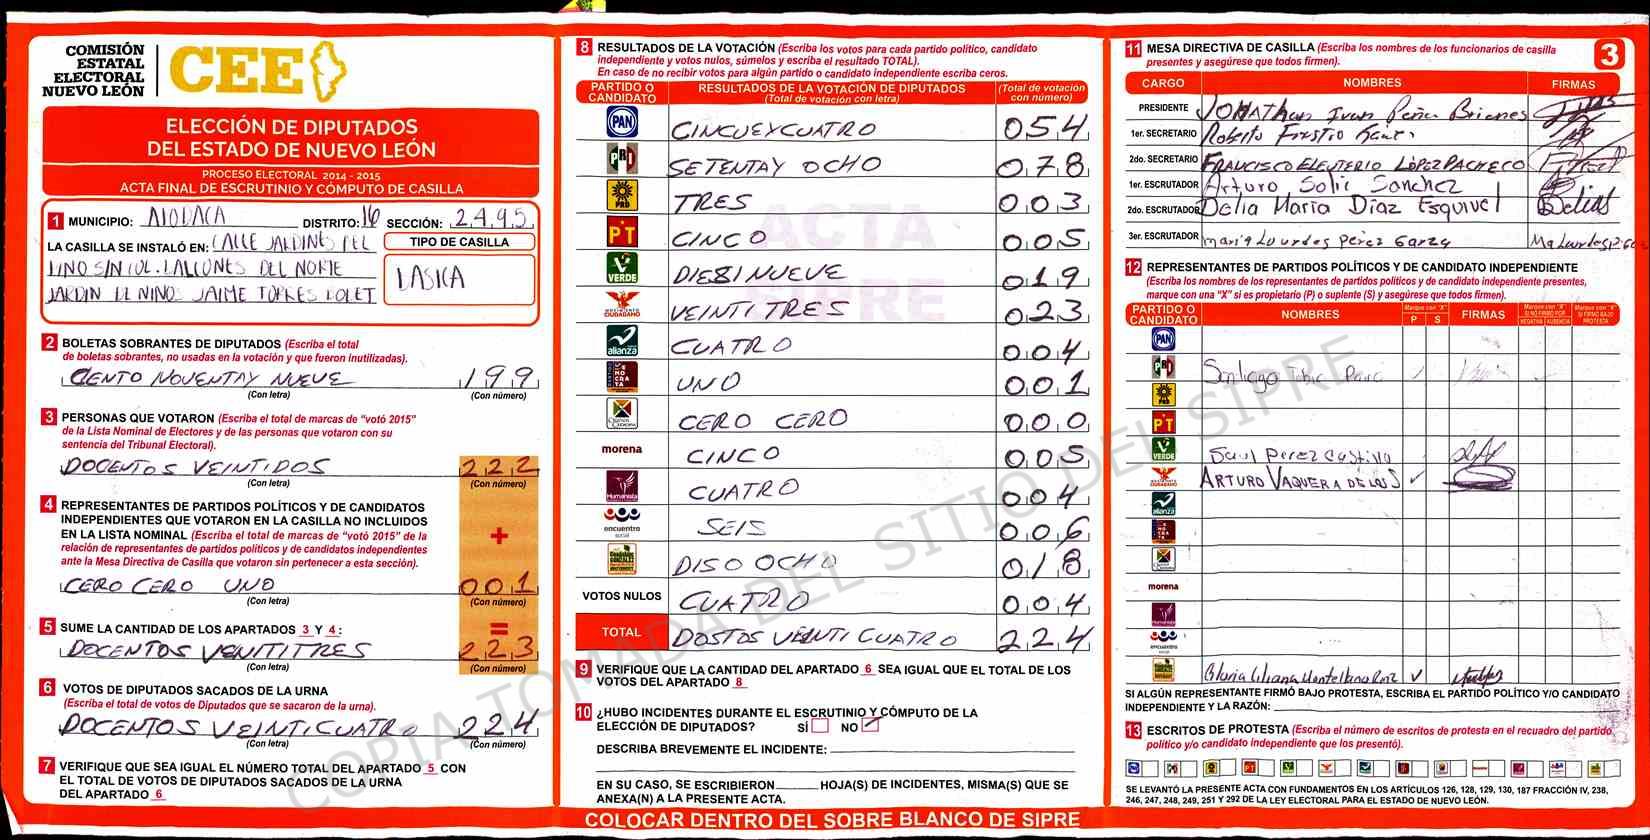 COMISIÓN
ESTATAL
ELECTORAL
NUEVO LEÓN
CEE
ELECCIÓN DE DIPUTADOS
DEL ESTADO DE NUEVO LEÓN
PROCESO ELECTORAL 2014 - 2015
ACTA FINAL DE ESCRUTINIO Y CÓMPUTO DE CASILLA
1 MUNICIPIO: DISTRITO: 16 SECCIÓN: 2495
LA CASILLA SE INSTALÓ EN: CALLE JARDINES DEL
TIPO DE CASILLA
LINO SIN COL. DEL NORTE
JARDIN DE NINOS JAIME TORRES
2 BOLETAS SOBRANTES DE DIPUTADOS (Escriba el total
de boletas sobrantes, no usadas en la votación y que fueron inutilizadas).
CIENTO NOVENTAY NUEVE 199
(Con letra) (Con número)
3 PERSONAS QUE VOTARON (Escriba el total de marcas de "votó 2015"
de la Lista Nominal de Electores y de las personas que votaron con su
sentencia del Tribunal Electoral).
DOCENTOS VEINTIDOS 222
(Con letra) (Con número)
4 REPRESENTANTES DE PARTIDOS POLÍTICOS Y DE CANDIDATOS
INDEPENDIENTES QUE VOTARON EN LA CASILLA NO INCLUIDOS
EN LA LISTA NOMINAL (Escriba el total de marcas de "votó 2015" de la
relación de representantes de partidos políticos y de candidatos independientes
ante la Mesa Directiva de Casilla que votaron sin pertenecer a esta sección).
+
CERO CERO UNO 001
(Con letra) (Con número)
5 SUME LA CANTIDAD DE LOS APARTADOS 3 Y 4: =
DOCENTOS VENITITRES 223
(Con letra) (Con número)
6 VOTOS DE DIPUTADOS SACADOS DE LA URNA
(Escriba el total de votos de Diputados que se sacaron de la urna).
DOCENTOS VEINTICUATRO 224
(Con letra) (Con número)
7 VERIFIQUE QUE SEA IGUAL EL NÚMERO TOTAL DEL APARTADO 5 CON
EL TOTAL DE VOTOS DE DIPUTADOS SACADOS DE LA URNA
DEL APARTADO 6
8 RESULTADOS DE LA VOTACIÓN (Escriba los votos para cada partido político, candidato
independiente y votos nulos, súmelos y escriba el resultado TOTAL).
En caso de no recibir votos para algún partido o candidato independiente escriba ceros.
PARTIDO O CANDIDATO RESULTADOS DE LA VOTACIÓN DE DIPUTADOS (Total de votación con letra) (Total de votación con número)
PAN CINCUEYCUATRO 054
PRI SETENTAY OCHO 078
PRD TRES 003
PT CINCO 005
VERDE DIESINUEVE 019
MOVIMIENTO CIUDADANO VEINTITRES 023
alianza CUATRO 004
UNO 001
CERO CERO 000
morena CINCO 005
Humanista CUATRO 004
encuentro social SEIS 006
DISOOCHO 018
VOTOS NULOS CUATRO 004
TOTAL DOSTOS VEINTICUATRO 224
ACTA
SIPRE
9 VERIFIQUE QUE LA CANTIDAD DEL APARTADO 6 SEA IGUAL QUE EL TOTAL DE LOS
VOTOS DEL APARTADO 8
10 ¿HUBO INCIDENTES DURANTE EL ESCRUTINIO Y CÓMPUTO DE LA
ELECCIÓN DE DIPUTADOS? SÍ NO
DESCRIBA BREVEMENTE EL INCIDENTE:
EN SU CASO, SE ESCRIBIERON HOJA(S) DE INCIDENTES, MISMA(S) QUE SE
ANEXA(N) A LA PRESENTE ACTA.
COLOCAR DENTRO DEL SOBRE BLANCO DE SIPRE
11 MESA DIRECTIVA DE CASILLA (Escriba los nombres de los funcionarios de casilla
presentes y asegúrese que todos firmen).
3
CARGO NOMBRES FIRMAS
PRESIDENTE JONAThan Ivan Peña Briones
1er. SECRETARIO Roberto
2do. SECRETARIO FRANCISCO ELEUTERIO LÓPEZ PACHECO
1er. ESCRUTADOR Arturo Solis Sanchez
2do. ESCRUTADOR Delia Maria Díaz Esquivel Delias
3er. ESCRUTADOR maria Lourdes Perez Garza
12 REPRESENTANTES DE PARTIDOS POLÍTICOS Y DE CANDIDATO INDEPENDIENTE
(Escriba los nombres de los representantes de partidos políticos y de candidato independiente presentes,
marque con una "X" si es propietario (P) o suplente (S) y asegúrese que todos firmen).
PARTIDO O CANDIDATO NOMBRES Marque con "X" P S FIRMAS Marque con "X" SI NO FIRMÓ POR NEGATIVA AUSENCIA Marque con "X" SI FIRMÓ BAJO PROTESTA
PAN
PRI Santiago
PRD
PT
VERDE Saul Perez Castillo
MOVIMIENTO CIUDADANO ARTURO VAQUERA DE LOS S
alianza
morena
Humanista
encuentro social
Gloria Liliana
SI ALGÚN REPRESENTANTE FIRMÓ BAJO PROTESTA, ESCRIBA EL PARTIDO POLÍTICO Y/O CANDIDATO
INDEPENDIENTE Y LA RAZÓN:
13 ESCRITOS DE PROTESTA (Escriba el número de escritos de protesta en el recuadro del partido
político y/o candidato independiente que los presentó).
SE LEVANTÓ LA PRESENTE ACTA CON FUNDAMENTOS EN LOS ARTÍCULOS 126, 128, 129, 130, 187 FRACCIÓN IV, 238,
246, 247, 248, 249, 251 Y 292 DE LA LEY ELECTORAL PARA EL ESTADO DE NUEVO LEÓN.
COPIA TOMADA DEL SITIO DEL SIPRE